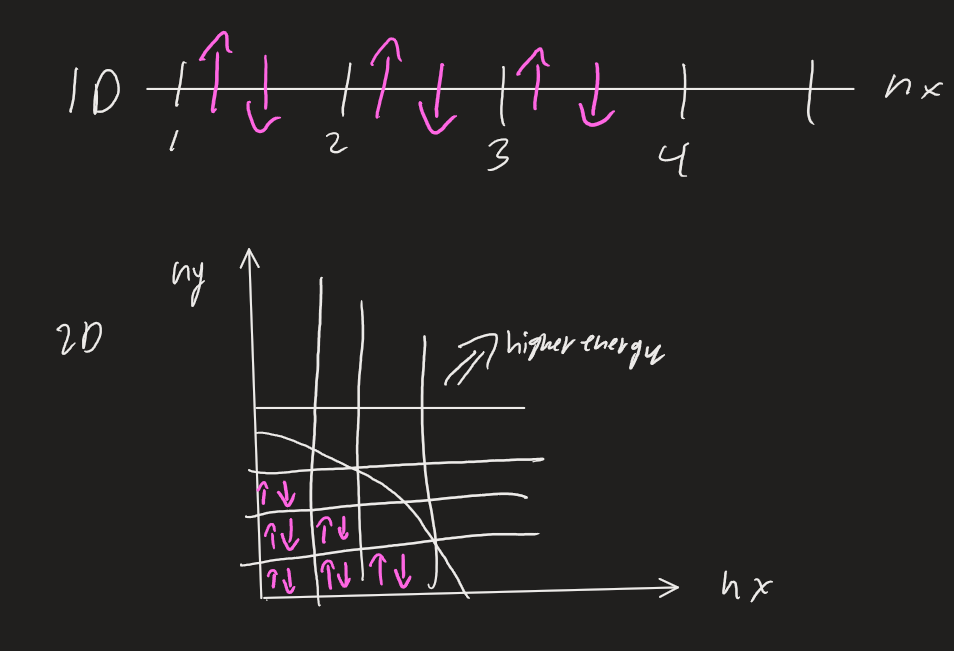 1D
nx
1 2 3 4
ny
2D
higher energy
nx